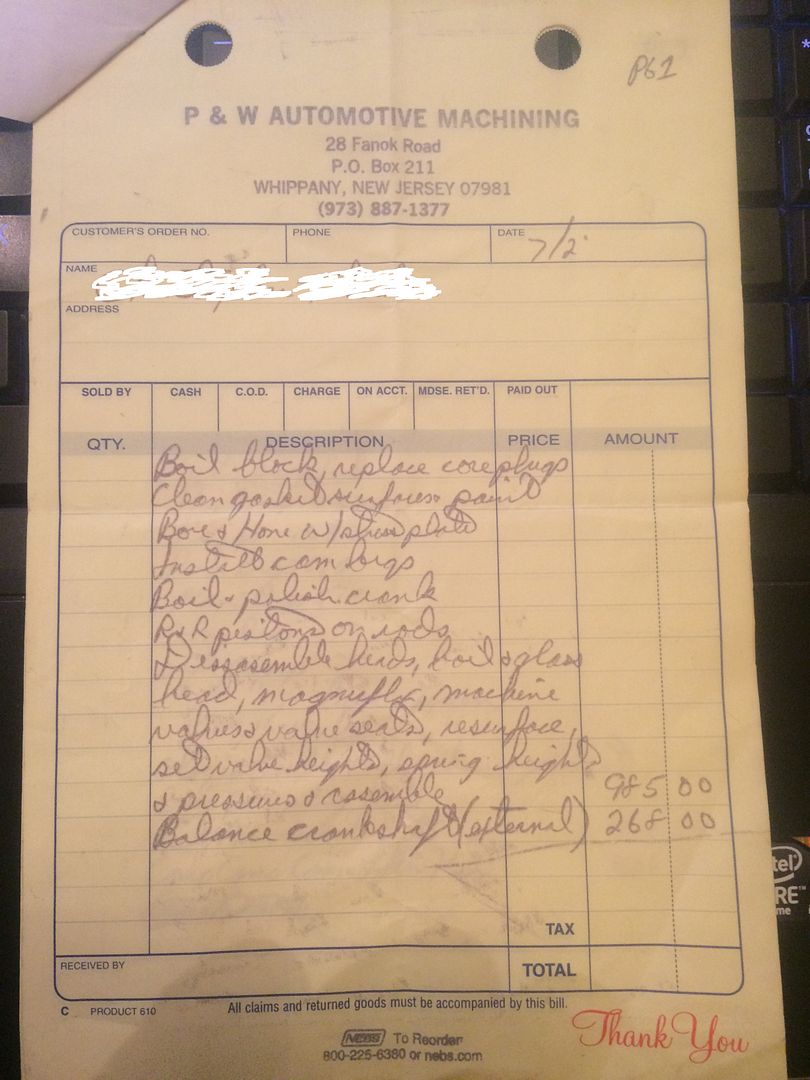 P61
P & W AUTOMOTIVE MACHINING
28 Fanok Road
P.O. Box 211
WHIPPANY, NEW JERSEY 07981
(973) 887-1377
CUSTOMER'S ORDER NO. PHONE DATE 7/2
NAME
ADDRESS
SOLD BY CASH C.O.D. CHARGE ON ACCT. MDSE. RET'D. PAID OUT
QTY. DESCRIPTION PRICE AMOUNT
Boil block, replace coreplugs
Clean gasket surfaces + paint
Bore + Hone w/ stress plate
Install cam brgs
Boil + polish crank
R+R pistons on rods
Dissasemble heads, boil + glass
head, magnaflx, machine
valves + valve seats, resurface,
set valve heights, spring heights
+ pressures + rasemble 985 00
Balance crankshaft (external) 268 00
TAX
RECEIVED BY TOTAL
C PRODUCT 610 All claims and returned goods must be accompanied by this bill.
Thank You
NEBS To Reorder
800-225-6380 or nebs.com
intel
CORE™